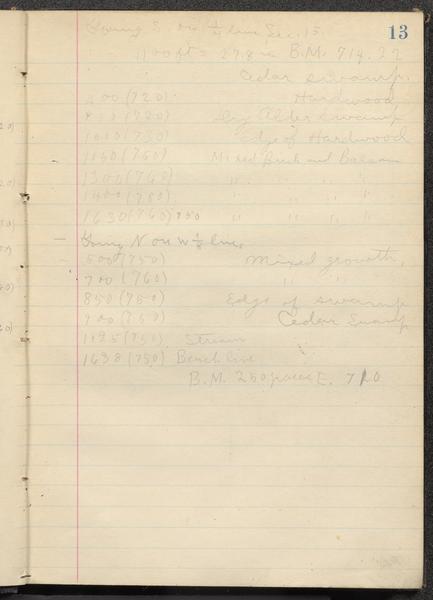 13
Going S. on ¼ line Sec. 15
1100 ft = 27.8 in B.M. 714.22
Cedar swamp.
400 (720) Hardwood
(720) Alder swamp
1000 (730) Edge of Hardwood
1150 (750) Mixed Birch and Balsam
1300 (760) " " " "
1400 (750) " " " "
1630 (760) 750 " " " "
— Going N on W ⅛ line
500 (750) Mixed growth,
700 (760) " "
850 (750) Edge of swamp
900 (750) Cedar Swamp
1125 (750) Stream
1638 (750) Beach line
B.M. 250 paces E. 710